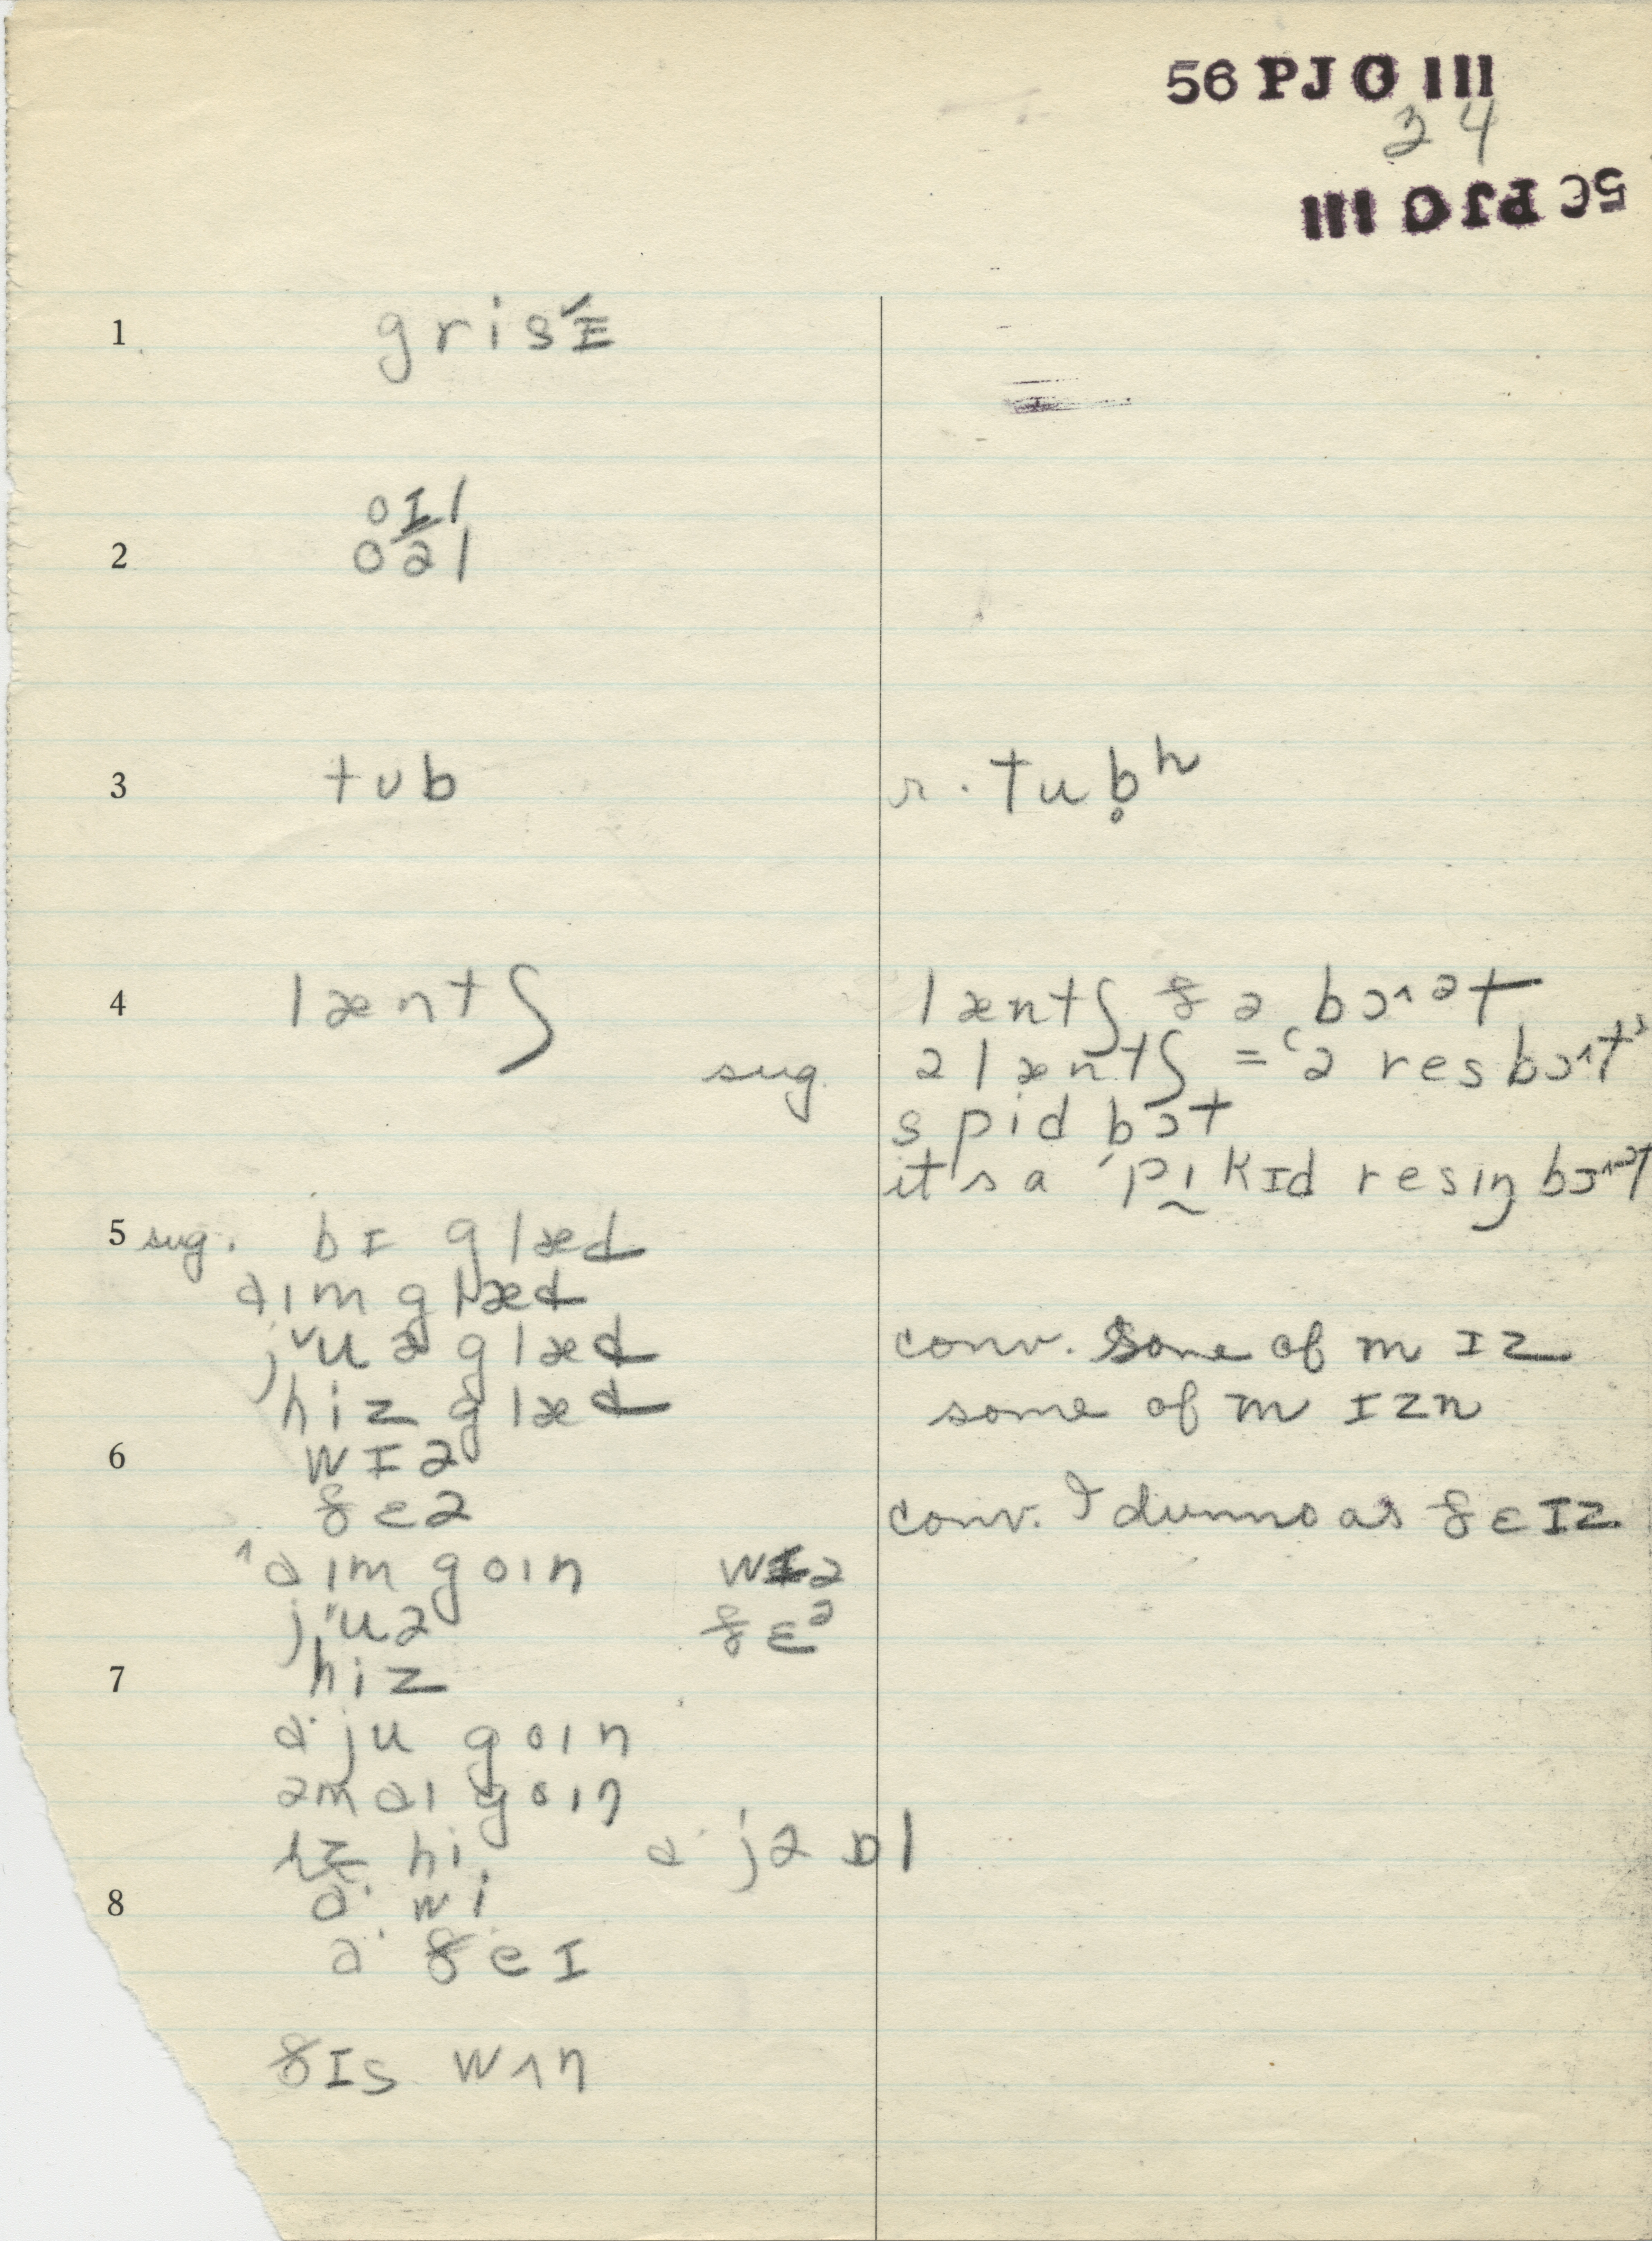 56 PJO III
24
56 PJO III
1 grisɪ
2 oɪl
oəl
3 tub
r. tub̥ʰ
4 læntʃ
læntʃ ðə bɔ^ət
sug. ə læntʃ = 'ə res bɔ^t'
spid bɔt
it's a 'pɪ̰kɪd resɪŋ bɔ^ət
5 sug. bɪ glæd
aɪm glæd
jᵛuə glæd
conv. some of m ɪz
hiz glæd
some of m ɪzn
6 wɪə
ðeə
conv. I dunno as ðɛɪz
^aɪm goɪn wɪə
jᵛuə ðɛᵊ
7 hiz
a· ju goɪn
əm aɪ goɪn
ɪz hi a· jə ɒl
8 a· wi
a· ðeɪ
ðɪs wʌn